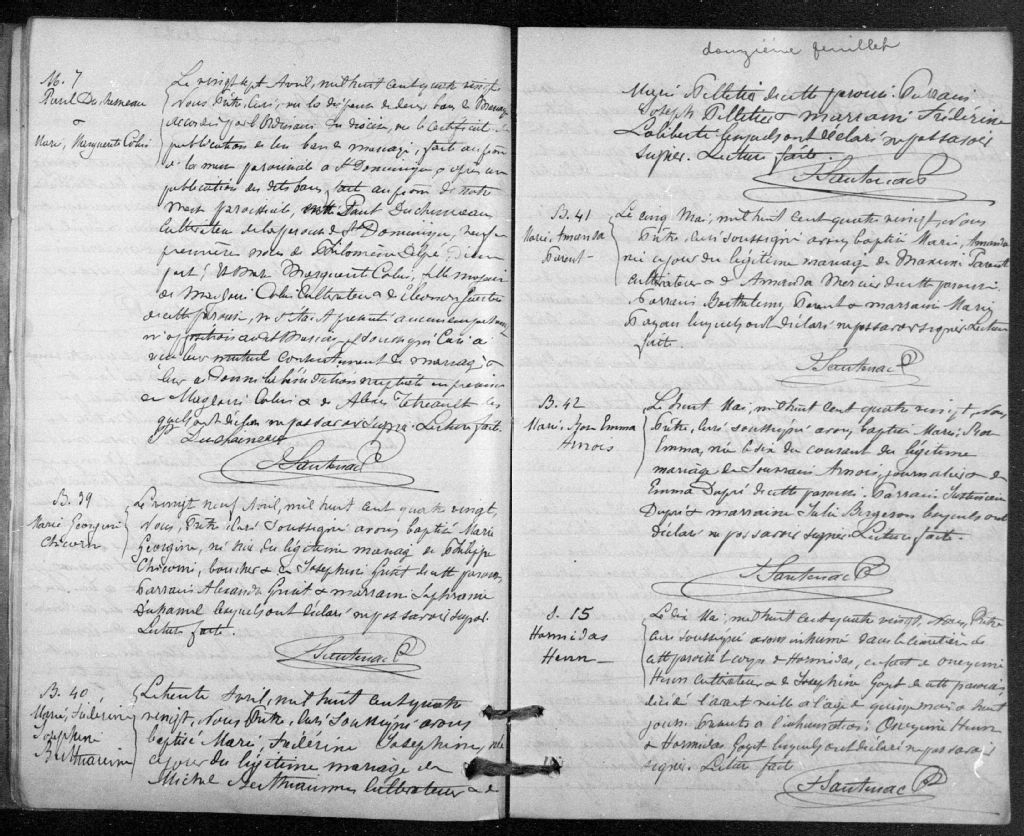 M. 7
Paul Duchesneau
&
Marie, Marguerite Colin
Le vingt sept Avril, mil huit cent quatre vingt
Nous, Prêtre, curé, vu la dispense de deux bans de Mariage
accordée par l'Ordinaire du diocèse, vu le certificat de
publication de ban de mariage, fait au prône
de la messe paroissiale à St Dominique, & après une
publication des dits bans, fait au prône de notre
messe paroissiale, entre Paul Duchesneau
Cultivateur de la paroisse de St Dominique, veuf en
première noces de Philomène
part; & Marie Marguerite Colin, fille mineure
de Magloire Colin Cultivateur & de
de cette paroisse, ne s'étant présenté aucun empêchement
ni opposition au dit Mariage, & soussigné Curé a
reçu leur mutuel consentement de mariage &
leur a donné la bénédiction nuptiale en présence
de Magloire Colin & de Alexis Tetreault les
quels ont déclaré ne pas savoir signer. Lecture faite.
P. Duchaineau
J Sautenac P
B. 39
Marie Georgine
Chicoine
Le vingt neuf Avril, mil huit cent quatre vingt,
Nous, Prêtre Curé soussigné avons baptisé Marie
Georgine, née hier du légitime mariage de Philippe
Chicoine, boucher & de Josephine Guyot de cette paroisse
Parrain Alexandre Guiot & marraine Sophronie
Duhamel lesquels ont déclaré ne pas savoir signer.
Lecture faite.
J Sautenac P
B. 40
Marie, Fédérine
Josephine
Berthiaume
Le trente Avril, mil huit cent quatre
vingt, Nous Prêtre, Curé Soussigné avons
baptisé Marie, Fédérine Josephine, née
ce jour du légitime mariage de
Michel Berthiaume Cultivateur & de
douzième feuillet
Pelletier de cette paroisse. Parrain
Joseph Pelletier & marraine Fédérine
Laliberté lesquels ont déclaré ne pas savoir
signer. Lecture faite.
J Sautenac P
B. 41
Marie, Amanda
Parent
Le cinq Mai, mil huit cent quatre vingt, Nous
Prêtre, curé soussigné avons baptisé Marie, Amanda
née ce jour du légitime mariage de Maxime Parent
cultivateur & de Amanda Mercier de cette paroisse
Parrain Barthelemy Parent & marraine Marie
Payan lesquels ont déclaré ne pas savoir signer. Lecture
faite.
J Sautenac P
B. 42
Marie Rose Emma
Arnois
Le huit Mai, mil huit cent quatre vingt, Nous
Prêtre, Curé soussigné avons baptisé Marie Rose
Emma, née le six du courant du légitime
mariage de Toussaint Arnois, journalier & de
Emma Dupré de cette paroisse. Parrain
Dupré & marraine Julie Bergeron lesquels ont
déclaré ne pas savoir signer. Lecture faite.
J Sautenac P
S. 15
Hormidas
Heon
Le dix Mai, mil huit cent quatre vingt, Nous, Prêtre
curé soussigné avons inhumé dans le cimetière de
cette paroisse le corps d'Hormidas, enfant de Onesime
Heon cultivateur & de Josephine Goyet de cette paroisse
décédé l'avant veille à l'age de quinze mois & huit
jours. Présents à l'inhumation; Onesime Heon
& Hormidas Goyet lesquels ont déclaré ne pas savoir
signer. Lecture faite
J Sautenac P